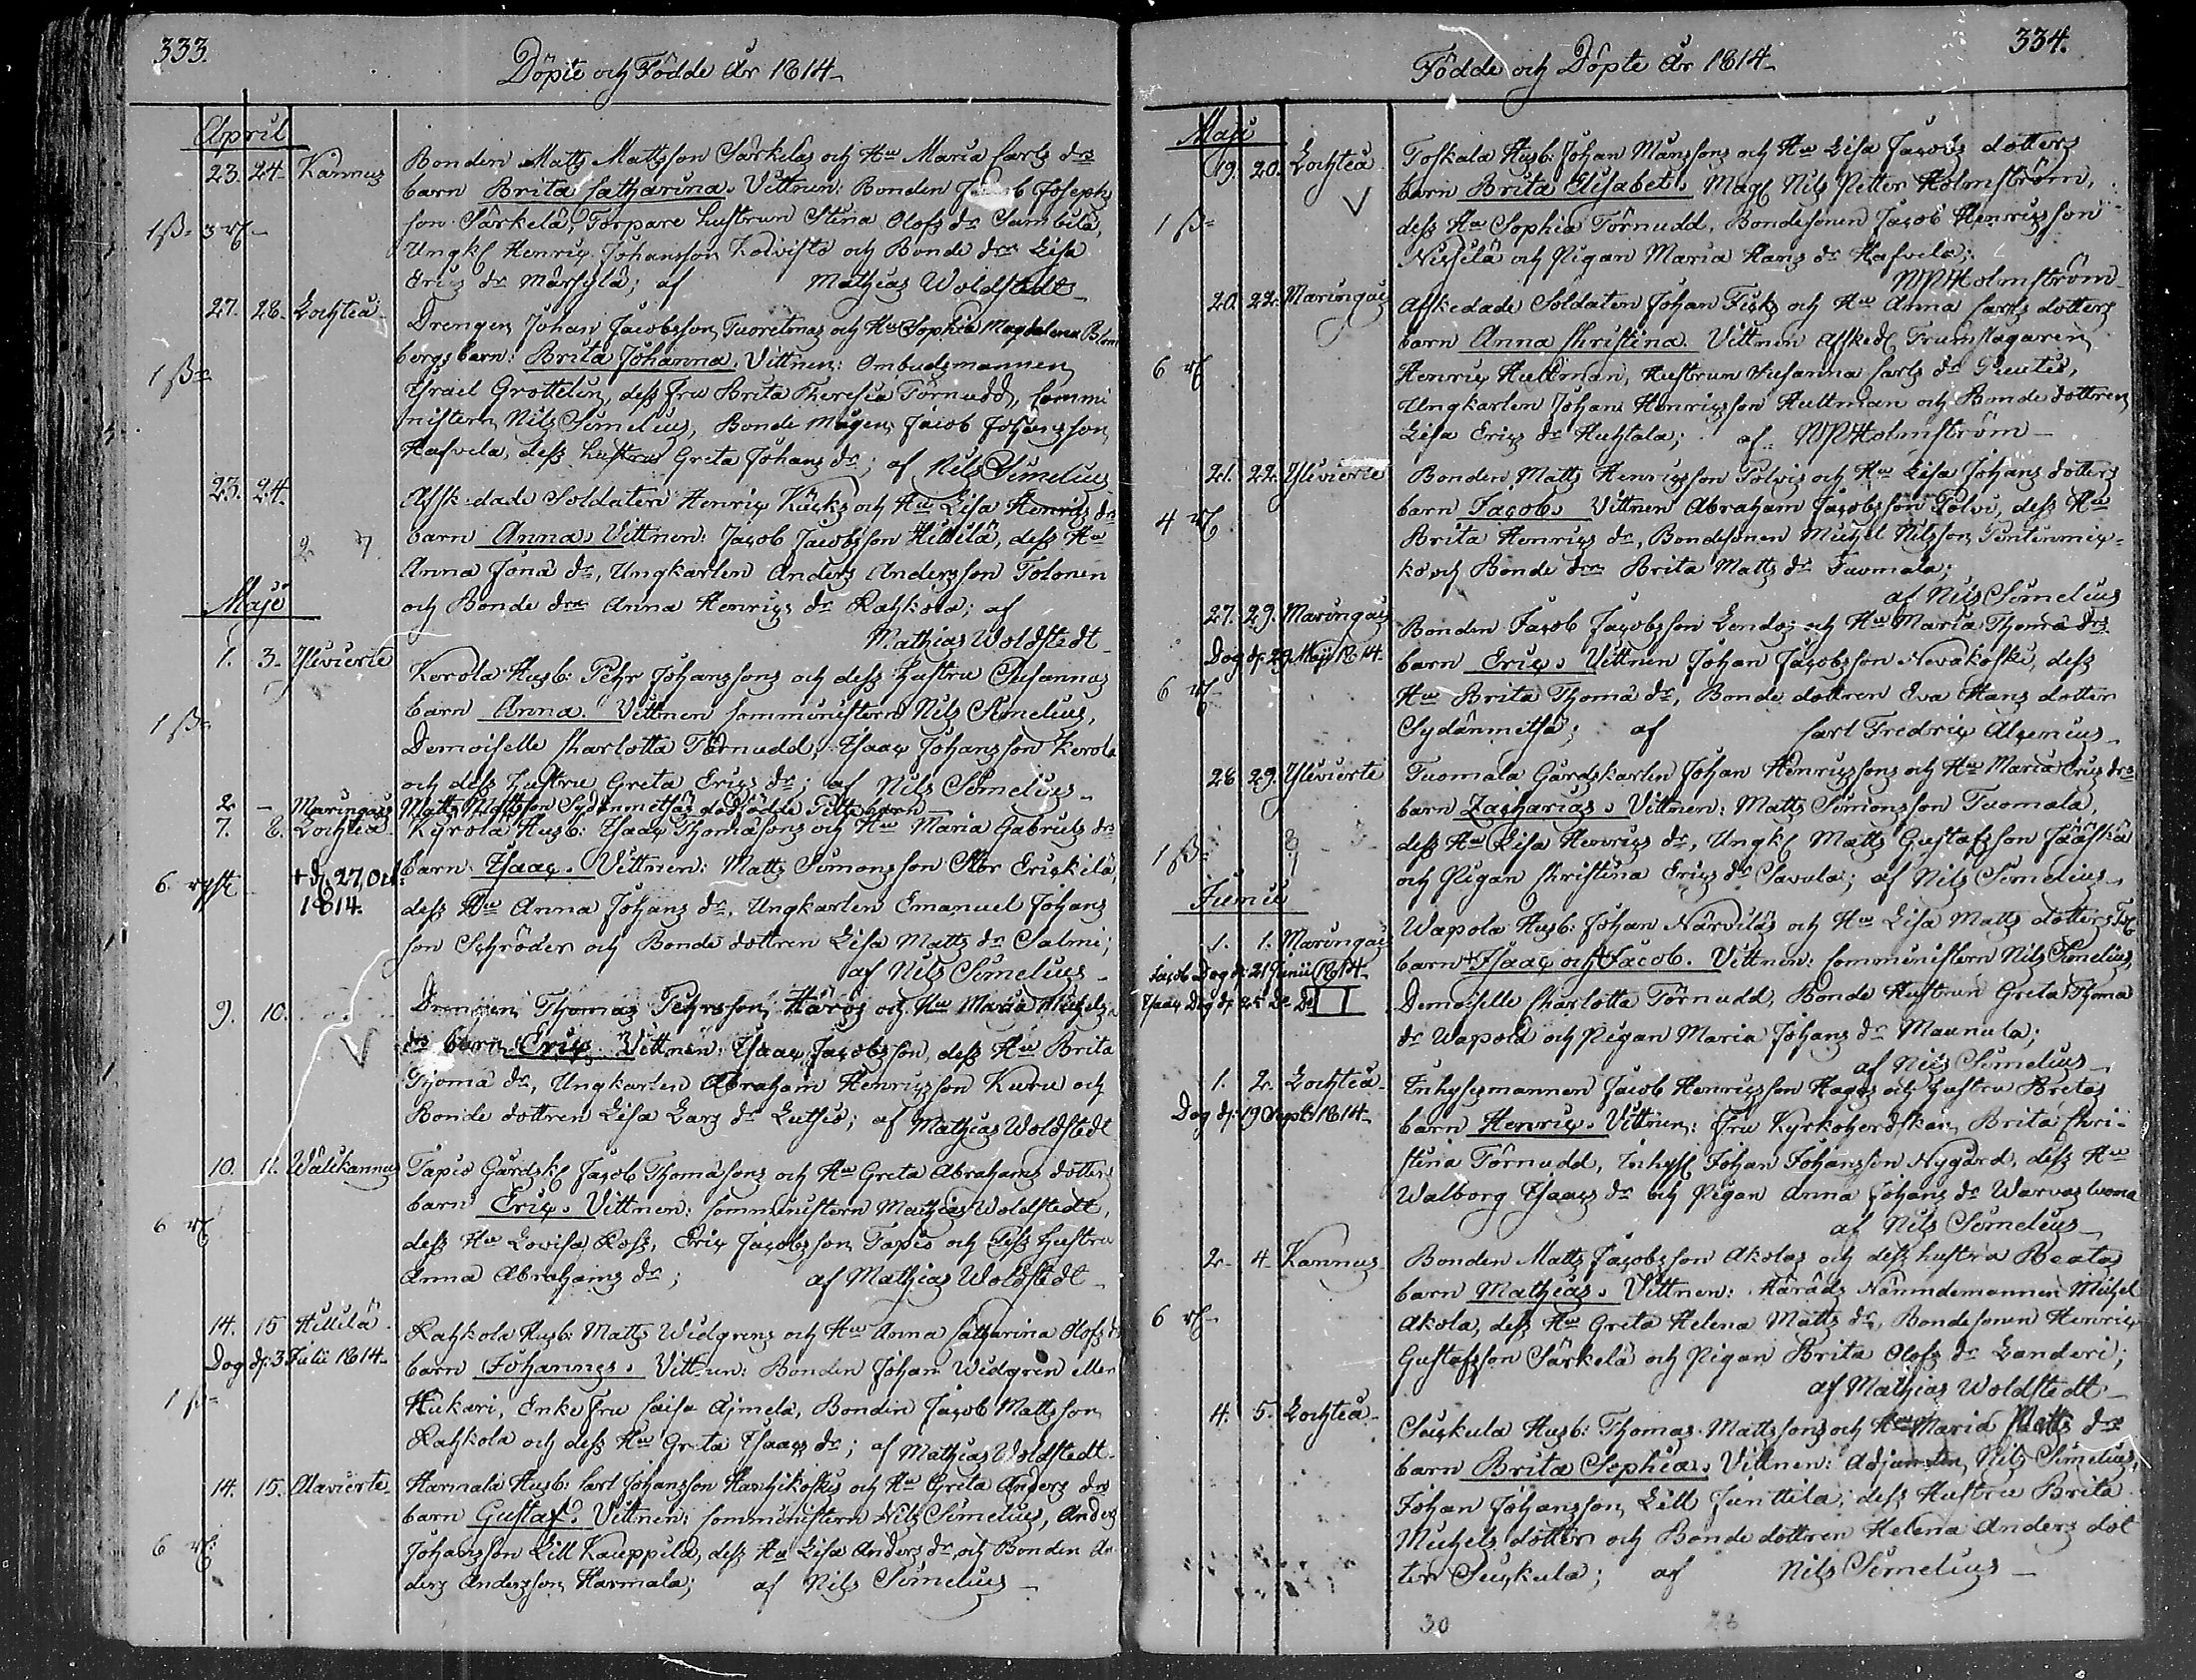 333.
Döpte och Födde År 1814.
April
23. 24. Kannus Bonden Matts Mattsson Särkelas och Hu Maria Carls drs
barn Brita Catharina. Vittnen: Bonden Jacob Josephs
1 ß. 3 rf. son Särkelä, Torpare hustrun Stina Olofs dr
Ungk: Henric Johansson Kolvisto och Bonde drn Lisa
Erics dr Märsylä; af Mathias Woldstedt
27. 28. Lochteå Drengen Johan Jacobsson Tuoretmas och Hu Sophia Magdalena Blom
bergs barn: Brita Johanna. Vittnen: Ombudsmannen
1 ß
Israel Grottelin, dess fru Brita Theresia Törnudd, Commi
nistern Nils Simelius, Bonde mågen Jacob Johansson
Hafvela, dess hustru Greta Johans dr; af Nils Simelius
23. 24. Afskedade Soldaten Henric Kücks och Hu Lisa Henrics drs
barn Anna. Vittnen: Jacob Jacobsson Hillilä, dess Hu
Anna Jona dr, Ungkarlen Anders Andersson Tolonen
och Bonde drn Anna Henrics dr Rahkola; af
Mathias Woldstedt
Maji
1. 3. Ylivierie Kerola Husb: Pehr Johanssons och dess hustru Susannas
barn Anna. Vittnen Comministern Nils Simelius,
1 ß
Demoiselle Charlotta Törnudd, Isaac Johansson Kerola
och dess hustru Greta Erics dr; af Nils Simelius
2. – Maringais Matts Mattsson Sydänmetsäs dödfödde barn
7. 8. Lochteå Kyrola Husb: Isaac Thomasons och Hu Maria Gabriels drs
+ d. 27 Oct. 1814. barn Isaac. Vittnen: Matts Simonsson Stor Erickilä,
dess Hu Anna Johans dr, Ungkarlen Emanuel Johans
son Schröder och Bonde dottren Lisa Matts dr Salmi;
af Nils Simelius
9. 10. Drengen Thomas Pehrsson Häros och Hu Maria Michels
drs barn Eric. Vittnen: Isaac Jacobsson, dess Hu Brita
Thoma dr, Ungkarlen Abraham Henricsson Kuru och
Bonde dottren Lisa Lars dr Luthio; af Mathias Woldstedt
10. 11. Wälikannus Tapio Gårdsk: Jacob Thomasons och Hu Greta Abrahams dotters
barn Eric. Vittnen: Comministern Mathias Woldstedt,
6 rf
dess Hu Lovisa Ross, Eric Jacobsson Tapio och dess hustru
Anna Abrahams dr; af Mathias Woldstedt
14. 15 Hillilä Rahkola Husb: Matts Widgrens och Hu Anna Catharina Olofs drs
Dog d. 3 Julii 1814. barn Johannes. Vittnen: Bonden Johan Widgren eller
1 ß
Hukari, Enke fru Caisa Ajmela, Bonden Jacob Mattsson
Rahkola och dess Hu Greta Isaacs dr; af Mathias Woldstedt.
14. 15. Alavierte Harmala Husb: Carl Johansson Hanhikoskis och Hu Greta Anders drs
barn Gustaf. Vittnen: Comministern Nils Simelius, Anders
6 rf
Johansson Lill Kauppila, dess Hu Lisa Anders dr, och Bonden An
ders Andersson Harmala; af Nils Simelius
334.
Födde och Döpte År 1814
Maji
19. 20. Lochteå Toskala Husb: Johan Månssons och Hu Lisa Jacobs dotters
barn Brita Elisabet. Mag: Nils Petter Holmström,
1 ß
dess Hu Sophia Törnudd, Bondesonen Jacob Henricsson
Nissilä och Pigan Maria Hans dr Hafvela;
NPHolmström
20. 22. Maringais Afskedade Soldaten Johan Ficks och Hu Anna Carls dotters
barn Anna Christina. Vittnen Afsked: Trumslagaren
6 rf
Henric Hultman, Hustrun Susanna Carls dr
Ungkarlen Johan Henricsson Hultman och Bonde dottren
Lisa Erics dr Huhtala; af NPHolmström
21. 22. Ylivierie Bonden Matts Henricsson Polvis och Hu Lisa Johans dotters
barn Jacob. Vittnen Abraham Jacobsson Polvi, dess Hu
4 rf
Brita Henrics dr, Bondesonen Michel Nilsson
ko och Bonde drn Brita Matts dr Tuomala;
af Nils Simelius
27. 29. Maringais Bonden Jacob Jacobsson Londos och Hu Maria Thoma drs
Dog d. 29 Maji 1814. barn Eric. Vittnen Johan Jacobsson Nevakoski, dess
6 rf
Hu Brita Thoma dr, Bonde dottren Eva Hans dotter
Sydänmetsä; af Carl Fredric Alcenius
28 29. Ylivierte Tuomala Gårdskarlen Johan Henricssons och Hu Maria Erics drs
barn Zacharias. Vittnen: Matts Simonsson Tuomala,
1 ß
dess Hu Lisa Henrics dr, Ungk: Matts Gustafsson Jääskä
och Pigan Christina Erics dr Savula; af Nils Simelius
Junii
1. 1. Maringais Wapola Husb: Johan Närviläs och Hu Lisa Matts dotters
Jacob Dog d. 21 Junii 1814. barn + Isaac och + Jacob. Vittnen: Comministern Nils Simelius,
Isaac Dog d. 25 Do Do Demoiselle Charlotta Törnudd, Bonde Hustrun Greta Thoma
dr Wapola och Pigan Maria Johans dr Maunula;
af Nils Simelius
1. 2. Lochteå Inhysesmannen Jacob Henricsson Hagas och hustru Britas
Dog d. 19 Sept. 1814. barn Henric. Vittnen: Fru Kyrkoherdskan Brita Chri-
stina Törnudd, Inhys: Johan Johansson Nygård, dess Hu
Walborg Isaacs dr och Pigan Anna Johans dr
af Nils Simelius
2. 4. Kannus Bonden Matts Jacobsson Akolas och dess hustru Beatas
barn Mathias. Vittnen: Härads Nämndemannen Michel
6 rf
Akola, dess Hu Greta Helena Matts dr, Bondesonen Henric
Gustafsson Särkelä och Pigan Brita Olofs dr Landeri;
af Mathias Woldstedt
4. 5. Lochteå Seickula Husb: Thomas Mattssons och Hu Maria Matts drs
barn Brita Sophia. Vittnen: Adjuncten Nils Simelius,
Johan Johansson Lill Junttila, dess Hustru Brita
Michels dotter och Bonde dottren Helena Anders dot
ter Seickula; af Nils Simelius
30